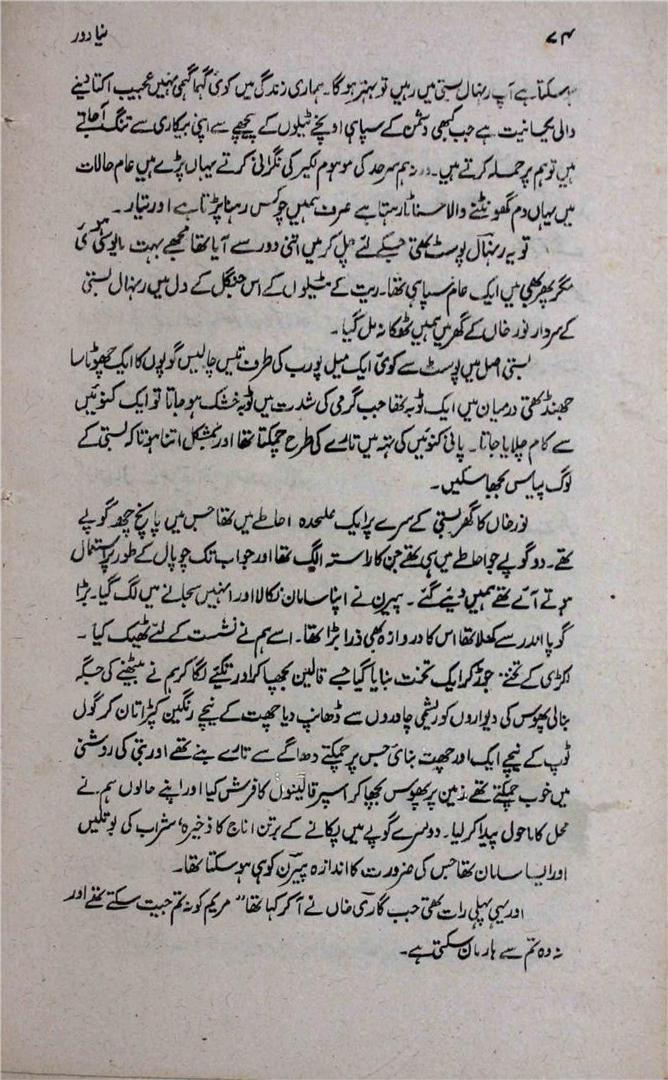 ۷۴ نیا دور
ہوسکتا ہے آپ رنہال بستی میں رہیں تو بہتر ہوگا۔ ہماری زندگی میں کوئی گہما گہمی نہیں عجیب اکتا دینے
والی یکسانیت ہے جب کبھی دشمن کے سپاہی اونچے ٹیلوں کے پیچھے سے اپنی بیکاری سے تنگ آجاتے
ہیں تو ہم پر حملہ کرتے ہیں۔ ورنہ ہم سرحد کی موہوم لکیر کی نگرانی کرتے یہاں پڑے ہیں عام حالات
میں یہاں دم گھونٹنے والا سناٹا رہتا ہے صرف ہمیں چوکس رہنا پڑتا ہے اور تیار۔
تو یہ رنہال پوسٹ تھی جسکے لئے چل کر میں اتنی دور سے آیا تھا مجھے بہت مایوسی ہوئی
مگر پھر بھی میں ایک عام سپاہی تھا۔ ریت کے ٹیلوں کے اس جنگل کے دل میں رنہال بستی
کے سردار نور خاں کے گھر میں ہمیں ٹھکانہ مل گیا۔
بستی اصل میں پوسٹ سے کوئی ایک میل پورب کی طرف تیس چالیس گوپوں کا ایک چھوٹا سا
جھنڈ تھی درمیان میں ایک ٹوبہ تھا جب گرمی کی شدت میں ٹوبہ خشک ہو جاتا تو ایک کنوئیں
سے کام چلایا جاتا۔ پانی کنوئیں کی تہہ میں تارے کی طرح چمکتا تھا اور بمشکل اتنا ہوتا کہ بستی کے
لوگ پیاس بجھا سکیں۔
نور خاں کا گھر بستی کے سرے پر ایک علیحدہ احاطے میں تھا جس میں پانچ چھ گوپے
تھے۔ دو گوپے جو احاطے میں ہی تھے جن کا راستہ الگ تھا اور جو اب تک چوپال کے طور پر استعمال
ہوتے آئے تھے ہمیں دیئے گئے۔ پیرن نے اپنا سامان نکالا اور انہیں سجانے میں لگ گیا۔ بڑا
گوپا اندر سے کھلا تھا اس کا دروازہ بھی ذرا بڑا تھا۔ اسے ہم نے نشست کے لئے ٹھیک کیا۔
لکڑی کے تختے جوڑ کر ایک تخت بنایا گیا جسے قالین بچھا کر اور تکیئے لگا کر ہم نے بیٹھنے کی جگہ
بنالی پھوس کی دیواروں کو ریشمی چادروں سے ڈھانپ دیا چھت کے نیچے رنگین کپڑا تان کر گول
ٹوپ کے نیچے ایک اور چھت بنائی جس پر چمکتے دھاگے سے تارے بنے تھے اور بتی کی روشنی
میں خوب چمکتے تھے، زمین پر پھوس بچھا کر اسپر قالینوں کا فرش کیا اور اپنے حالوں ہم نے
محل کا ماحول پیدا کر لیا۔ دوسرے گوپے میں پکانے کے برتن اناج کا ذخیرہ، شراب کی بوتلیں
اور ایسا سامان تھا جس کی ضرورت کا اندازہ پیرن کو ہی ہوسکتا تھا۔
اور یہی پہلی رات تھی جب گاری خاں نے آکر کہا تھا ”مریم کو نہ تم جیت سکتے تھے اور
نہ وہ تم سے ہار مان سکتی ہے۔